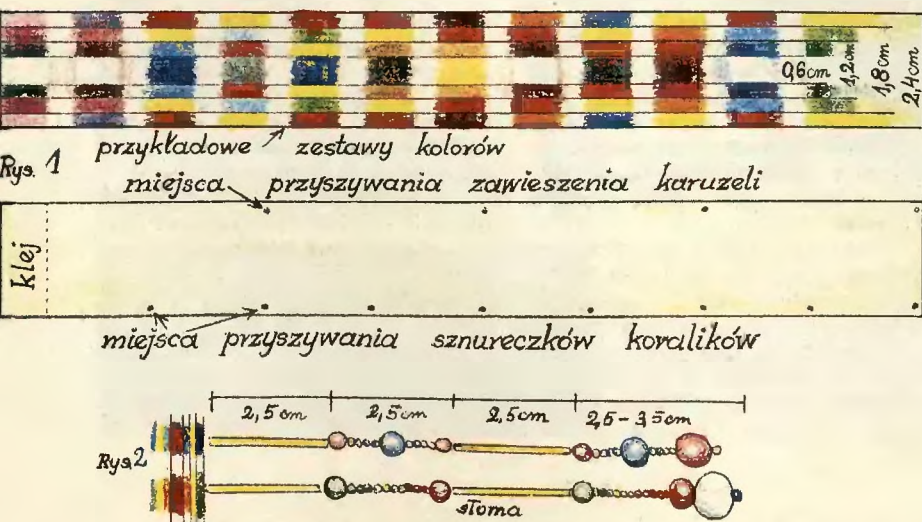 0,6cm 1,2cm 1,8cm 2,4cm
Rys. 1 przykładowe zestawy kolorów
miejsca przyszywania zawieszenia karuzeli
klej
miejsca przyszywania sznureczków koralików
2,5cm 2,5cm 2,5cm 2,5-3,5cm
Rys.2
słoma